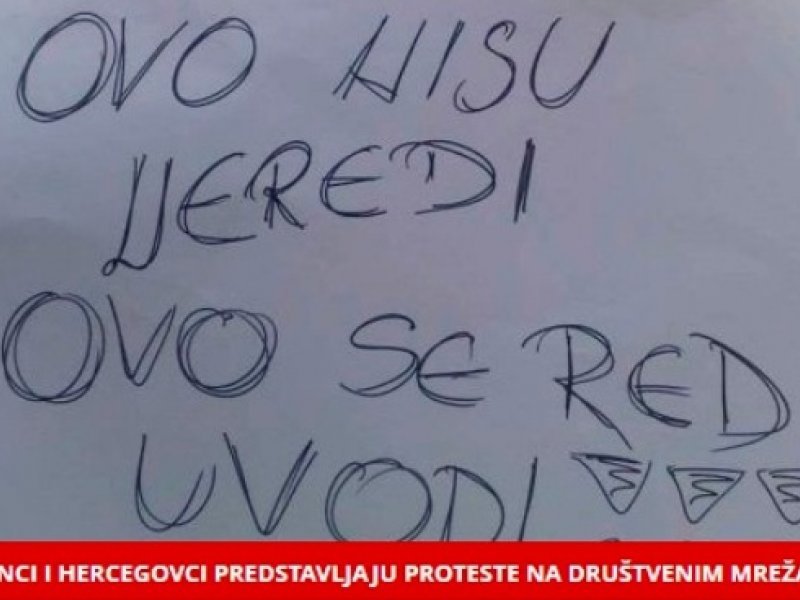 OVO NISU
NEREDI
OVO SE RED
UVODI !!!
NCI I HERCEGOVCI PREDSTAVLJAJU PROTESTE NA DRUŠTVENIM MREŽA